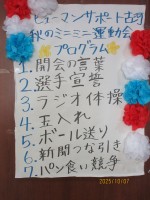 ヒューマンサポート古河
秋のミニミニ運動会
プログラム
1. 開会の言葉
2. 選手宣誓
3. ラジオ体操
4. 玉入れ
5. ボール送り
6. 新聞つな引き
7. パン食い競争
2025/10/07